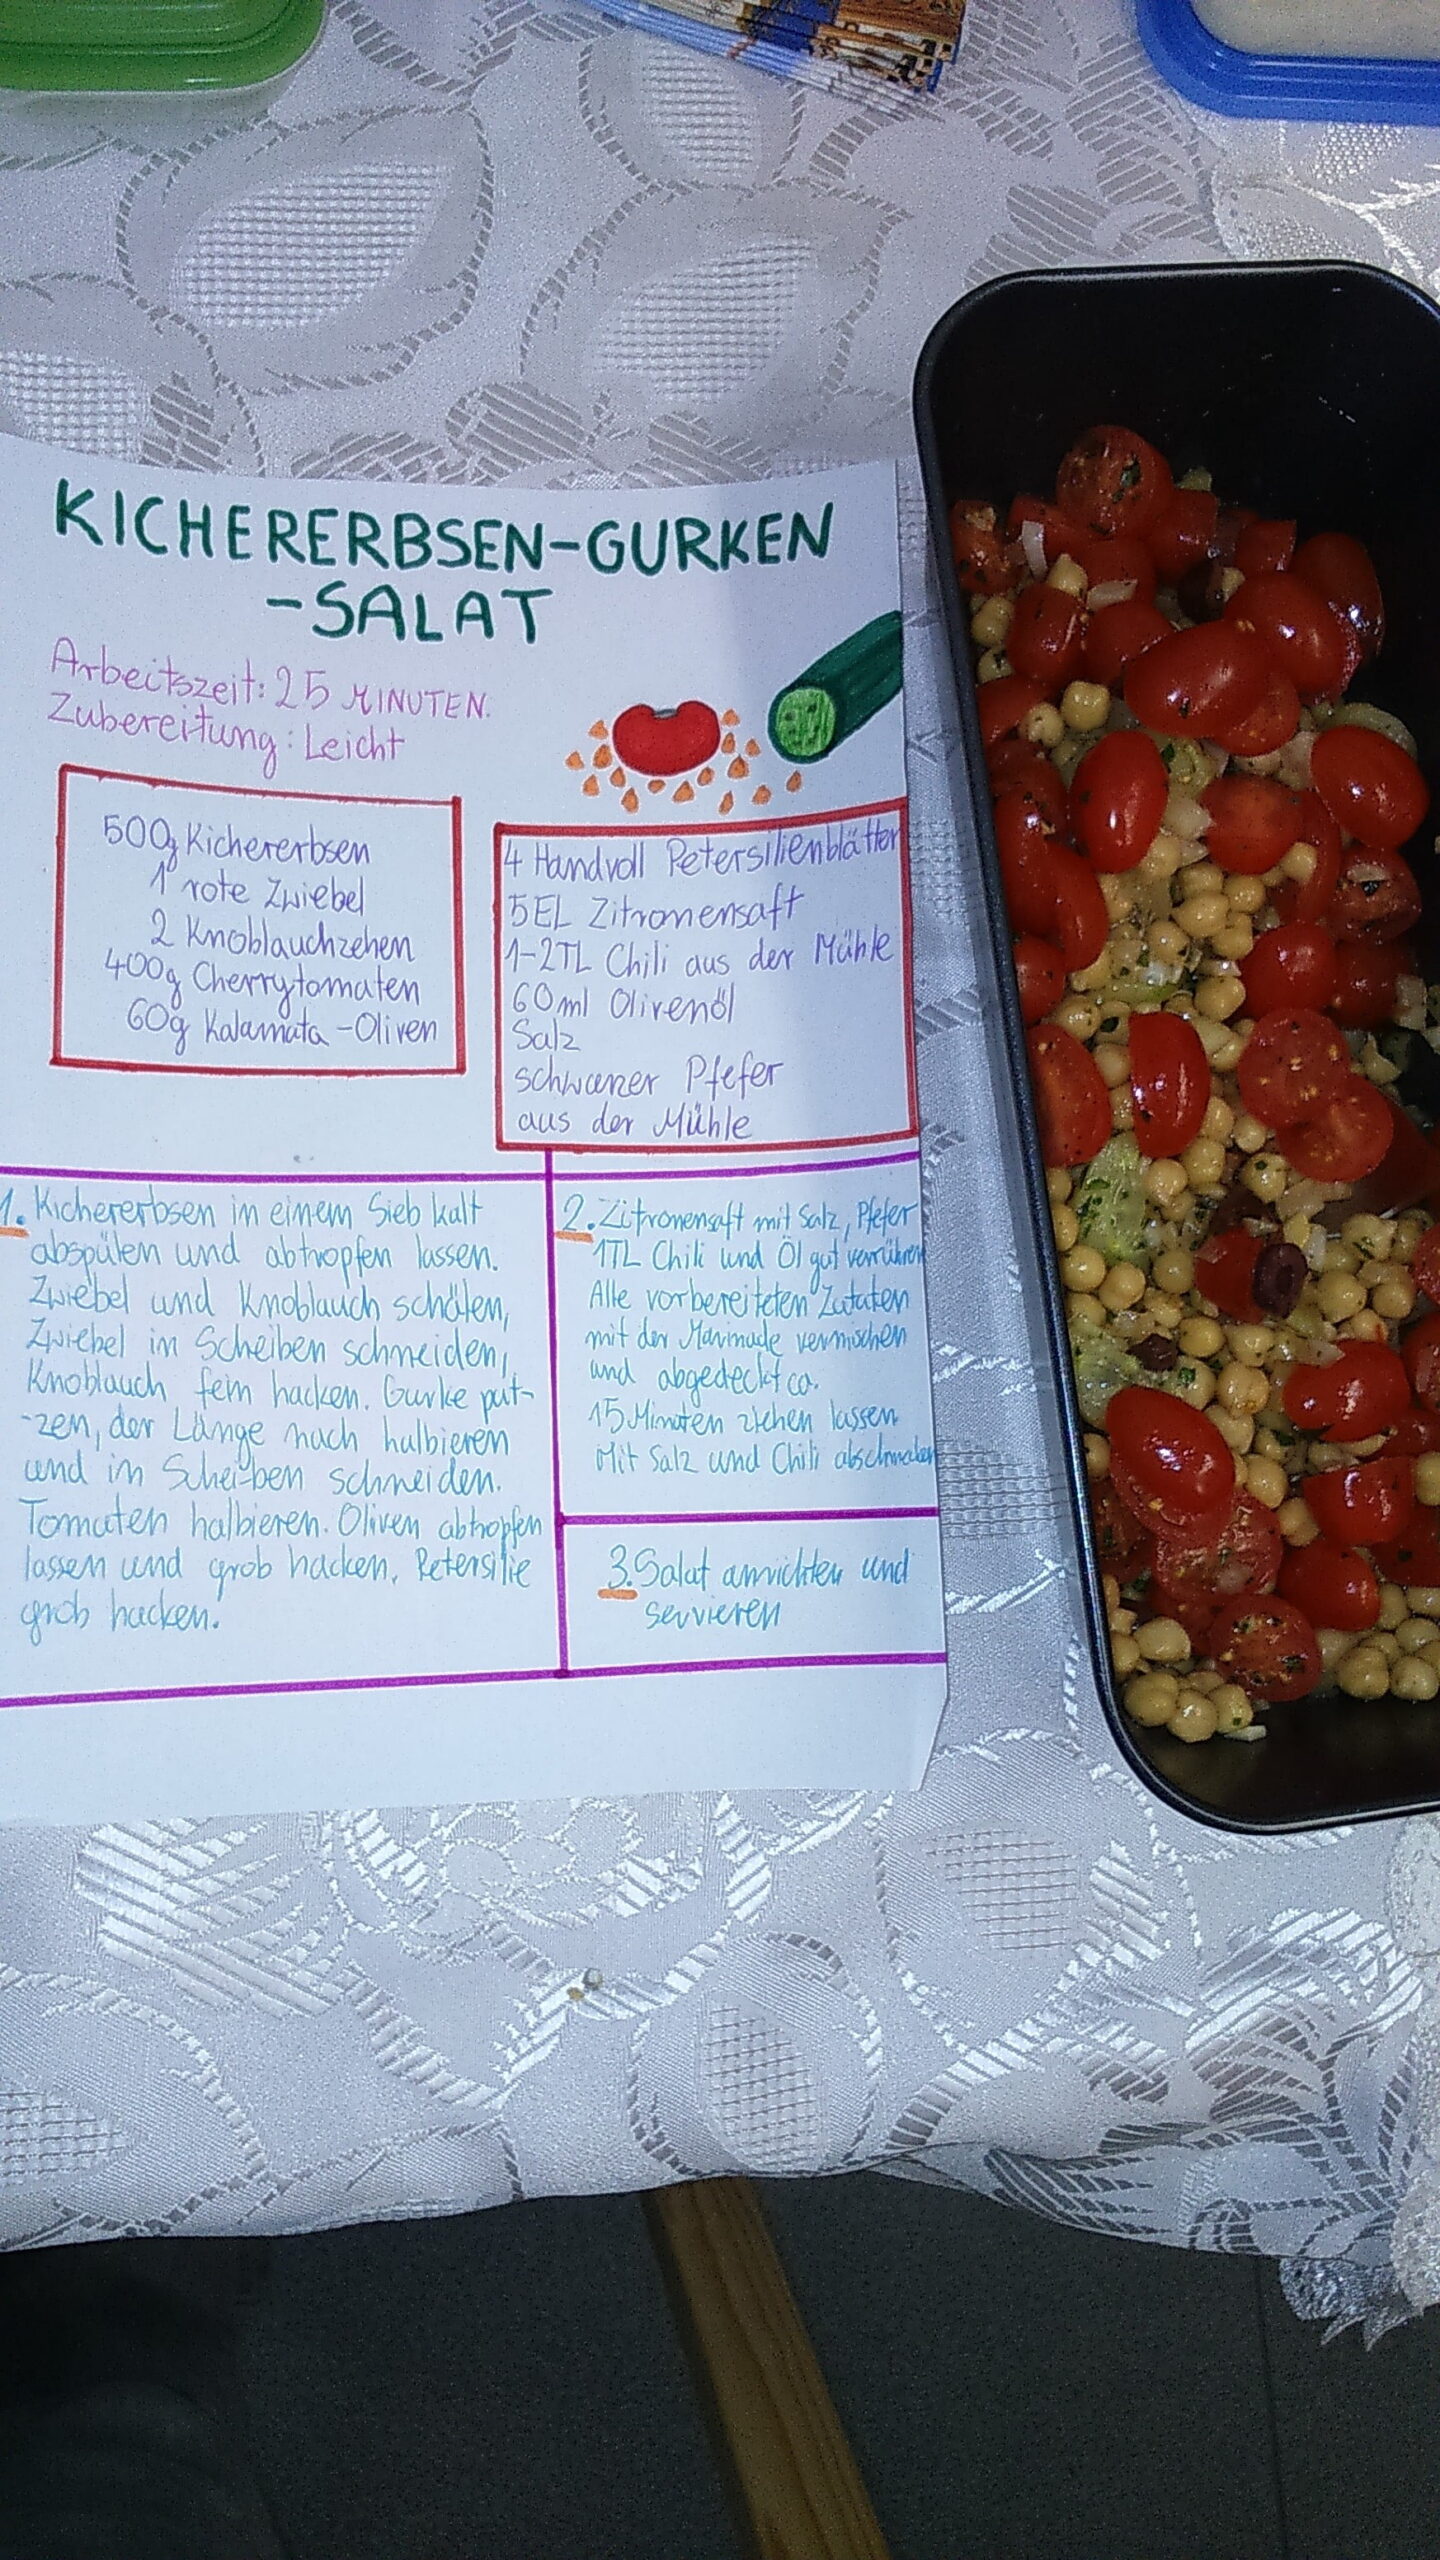 KICHERERBSEN-GURKEN
-SALAT
Arbeitszeit: 25 MINUTEN.
Zubereitung: Leicht
500g Kichererbsen
1 rote Zwiebel
2 Knoblauchzehen
400g Cherrytomaten
60g Kalamata-Oliven
4 Handvoll Petersilienblätter
5EL Zitronensaft
1-2TL Chili aus der Mühle
60ml Olivenöl
Salz
schwarzer Pfefer
aus der Mühle
1. Kichererbsen in einem Sieb kalt
abspülen und abtropfen lassen.
Zwiebel und Knoblauch schälen,
Zwiebel in Scheiben schneiden,
Knoblauch fein hacken. Gurke put-
-zen, der Länge nach halbieren
und in Scheiben schneiden.
Tomaten halbieren. Oliven abtropfen
lassen und grob hacken. Petersilie
grob hacken.
2. Zitronensaft mit Salz, Pfefer
1TL Chili und Öl gut verrühren
Alle vorbereiteten Zutaten
mit der Marinade vermischen
und abgedeckt ca.
15 Minuten ziehen lassen
Mit Salz und Chili abschmecken
3. Salat anrichten und
servieren